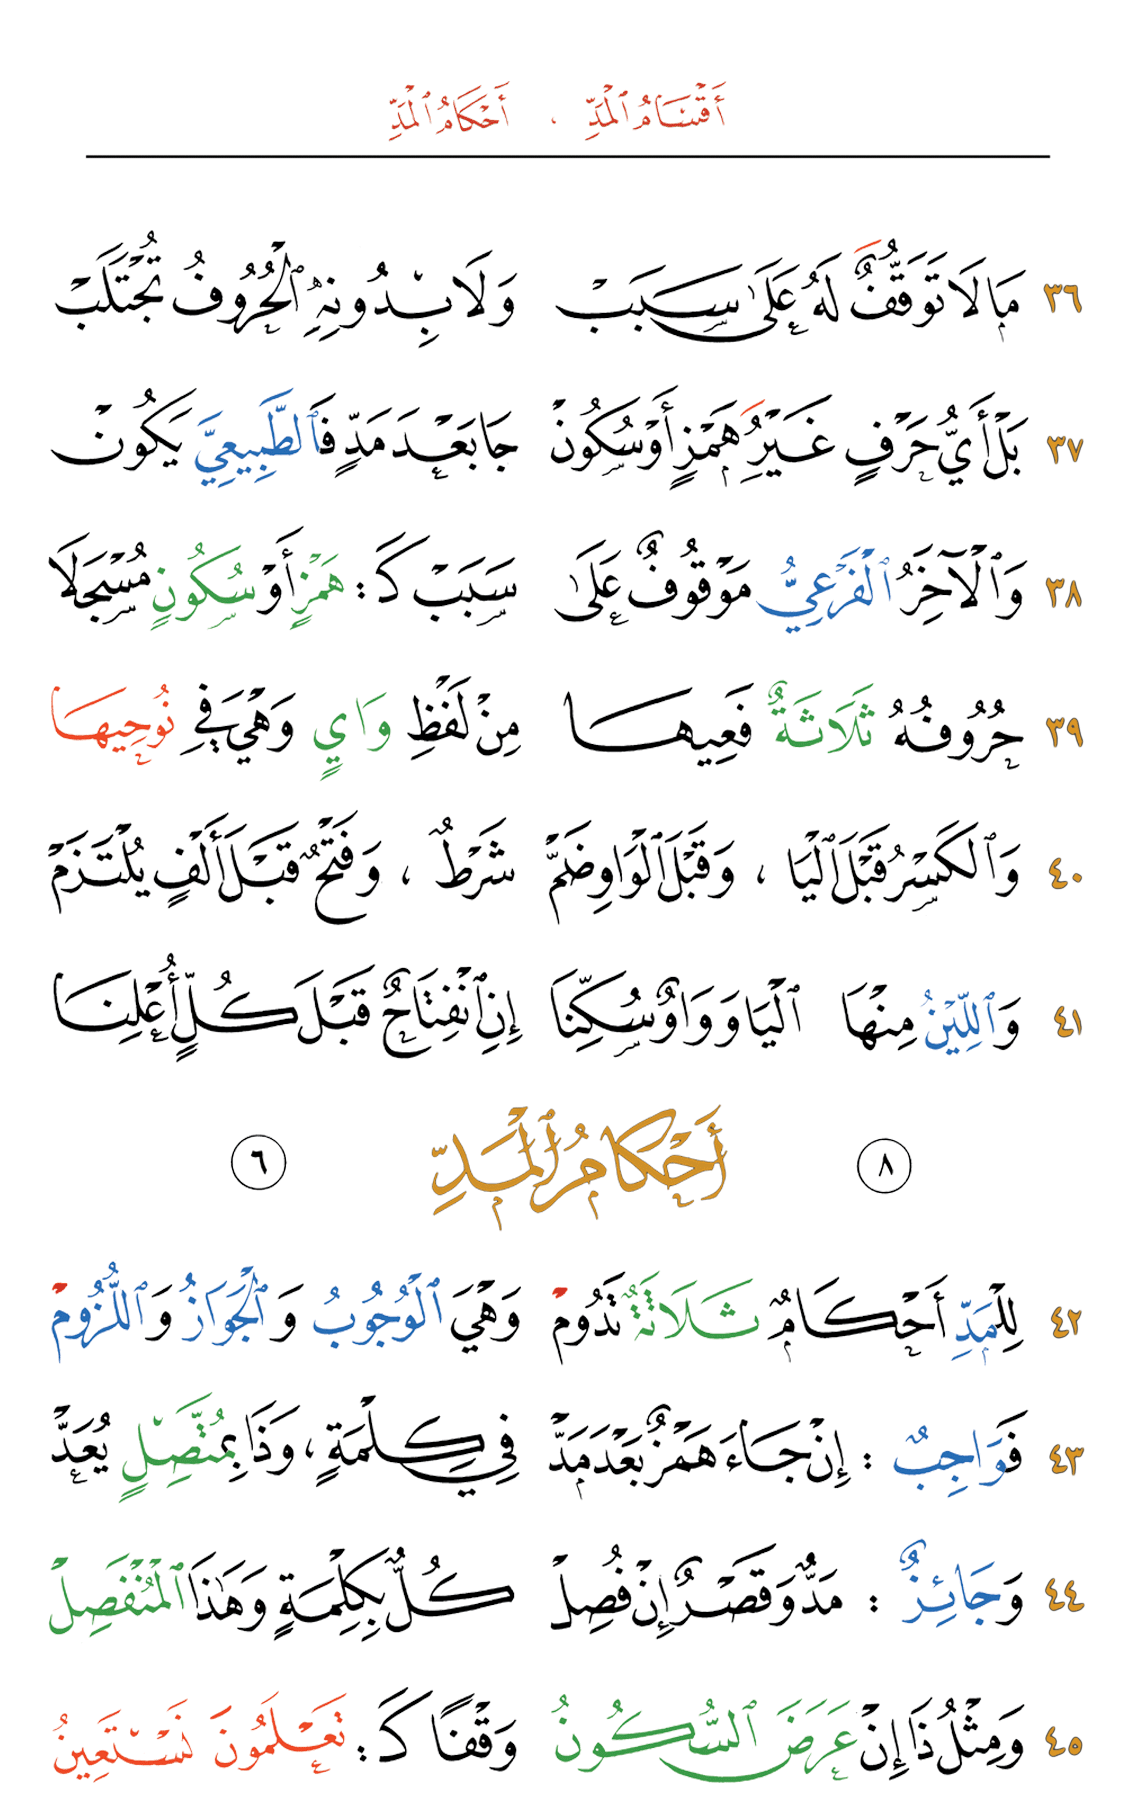 أَقْسَامُ ٱلْمَدِّ ، أَحْكَامُ ٱلْمَدِّ
٣٦ مَا لَا تَوَقُّفٌ لَهُ عَلَىٰ سَبَبْ وَلَا بِدُونِهِ ٱلْحُرُوفُ تُجْتَلَبْ
٣٧ بَلْ أَيُّ حَرْفٍ غَيْرُ هَمْزٍ أَوْ سُكُونْ جَا بَعْدَ مَدٍّ فَٱلطَّبِيعِيَّ يَكُونْ
٣٨ وَٱلْآخَرُ ٱلْفَرْعِيُّ مَوْقُوفٌ عَلَىٰ سَبَبْ كَـ: هَمْزٍ أَوْ سُكُونٍ مُسْجَلَا
٣٩ حُرُوفُهُ ثَلَاثَةٌ فَعِيهَا مِنْ لَفْظِ وَايٍ وَهْيَ فِي نُوحِيهَا
٤٠ وَٱلْكَسْرُ قَبْلَ ٱلْيَا ، وَقَبْلَ ٱلْوَاوِ ضَمّْ شَرْطٌ ، وَفَتْحٌ قَبْلَ أَلْفٍ يُلْتَزَمْ
٤١ وَٱللِّيْنُ مِنْهَا ٱلْيَا وَوَاوٌ سُكِّنَا إِنِ ٱنْفِتَاحٌ قَبْلَ كُلٍّ أُعْلِنَا
٨ أَحْكَامُ ٱلْمَدِّ ٦
٤٢ لِلْمَدِّ أَحْكَامٌ ثَلَاثَةٌ تَدُومْ وَهْيَ ٱلْوُجُوبُ وَٱلْجَوَازُ وَٱللُّزُومْ
٤٣ فَوَاجِبٌ : إِنْ جَاءَ هَمْزٌ بَعْدَ مَدّْ فِي كِلْمَةٍ ، وَذَا بِمُتَّصِلٍ يُعَدّْ
٤٤ وَجَائِزٌ : مَدٌّ وَقَصْرٌ إِنْ فُصِلْ كُلٌّ بِكِلْمَةٍ وَهَٰذَا ٱلْمُنْفَصِلْ
٤٥ وَمِثْلُ ذَا إِنْ عَرَضَ ٱلسُّكُونُ وَقْفًا كَـ: تَعْلَمُونَ نَسْتَعِينُ